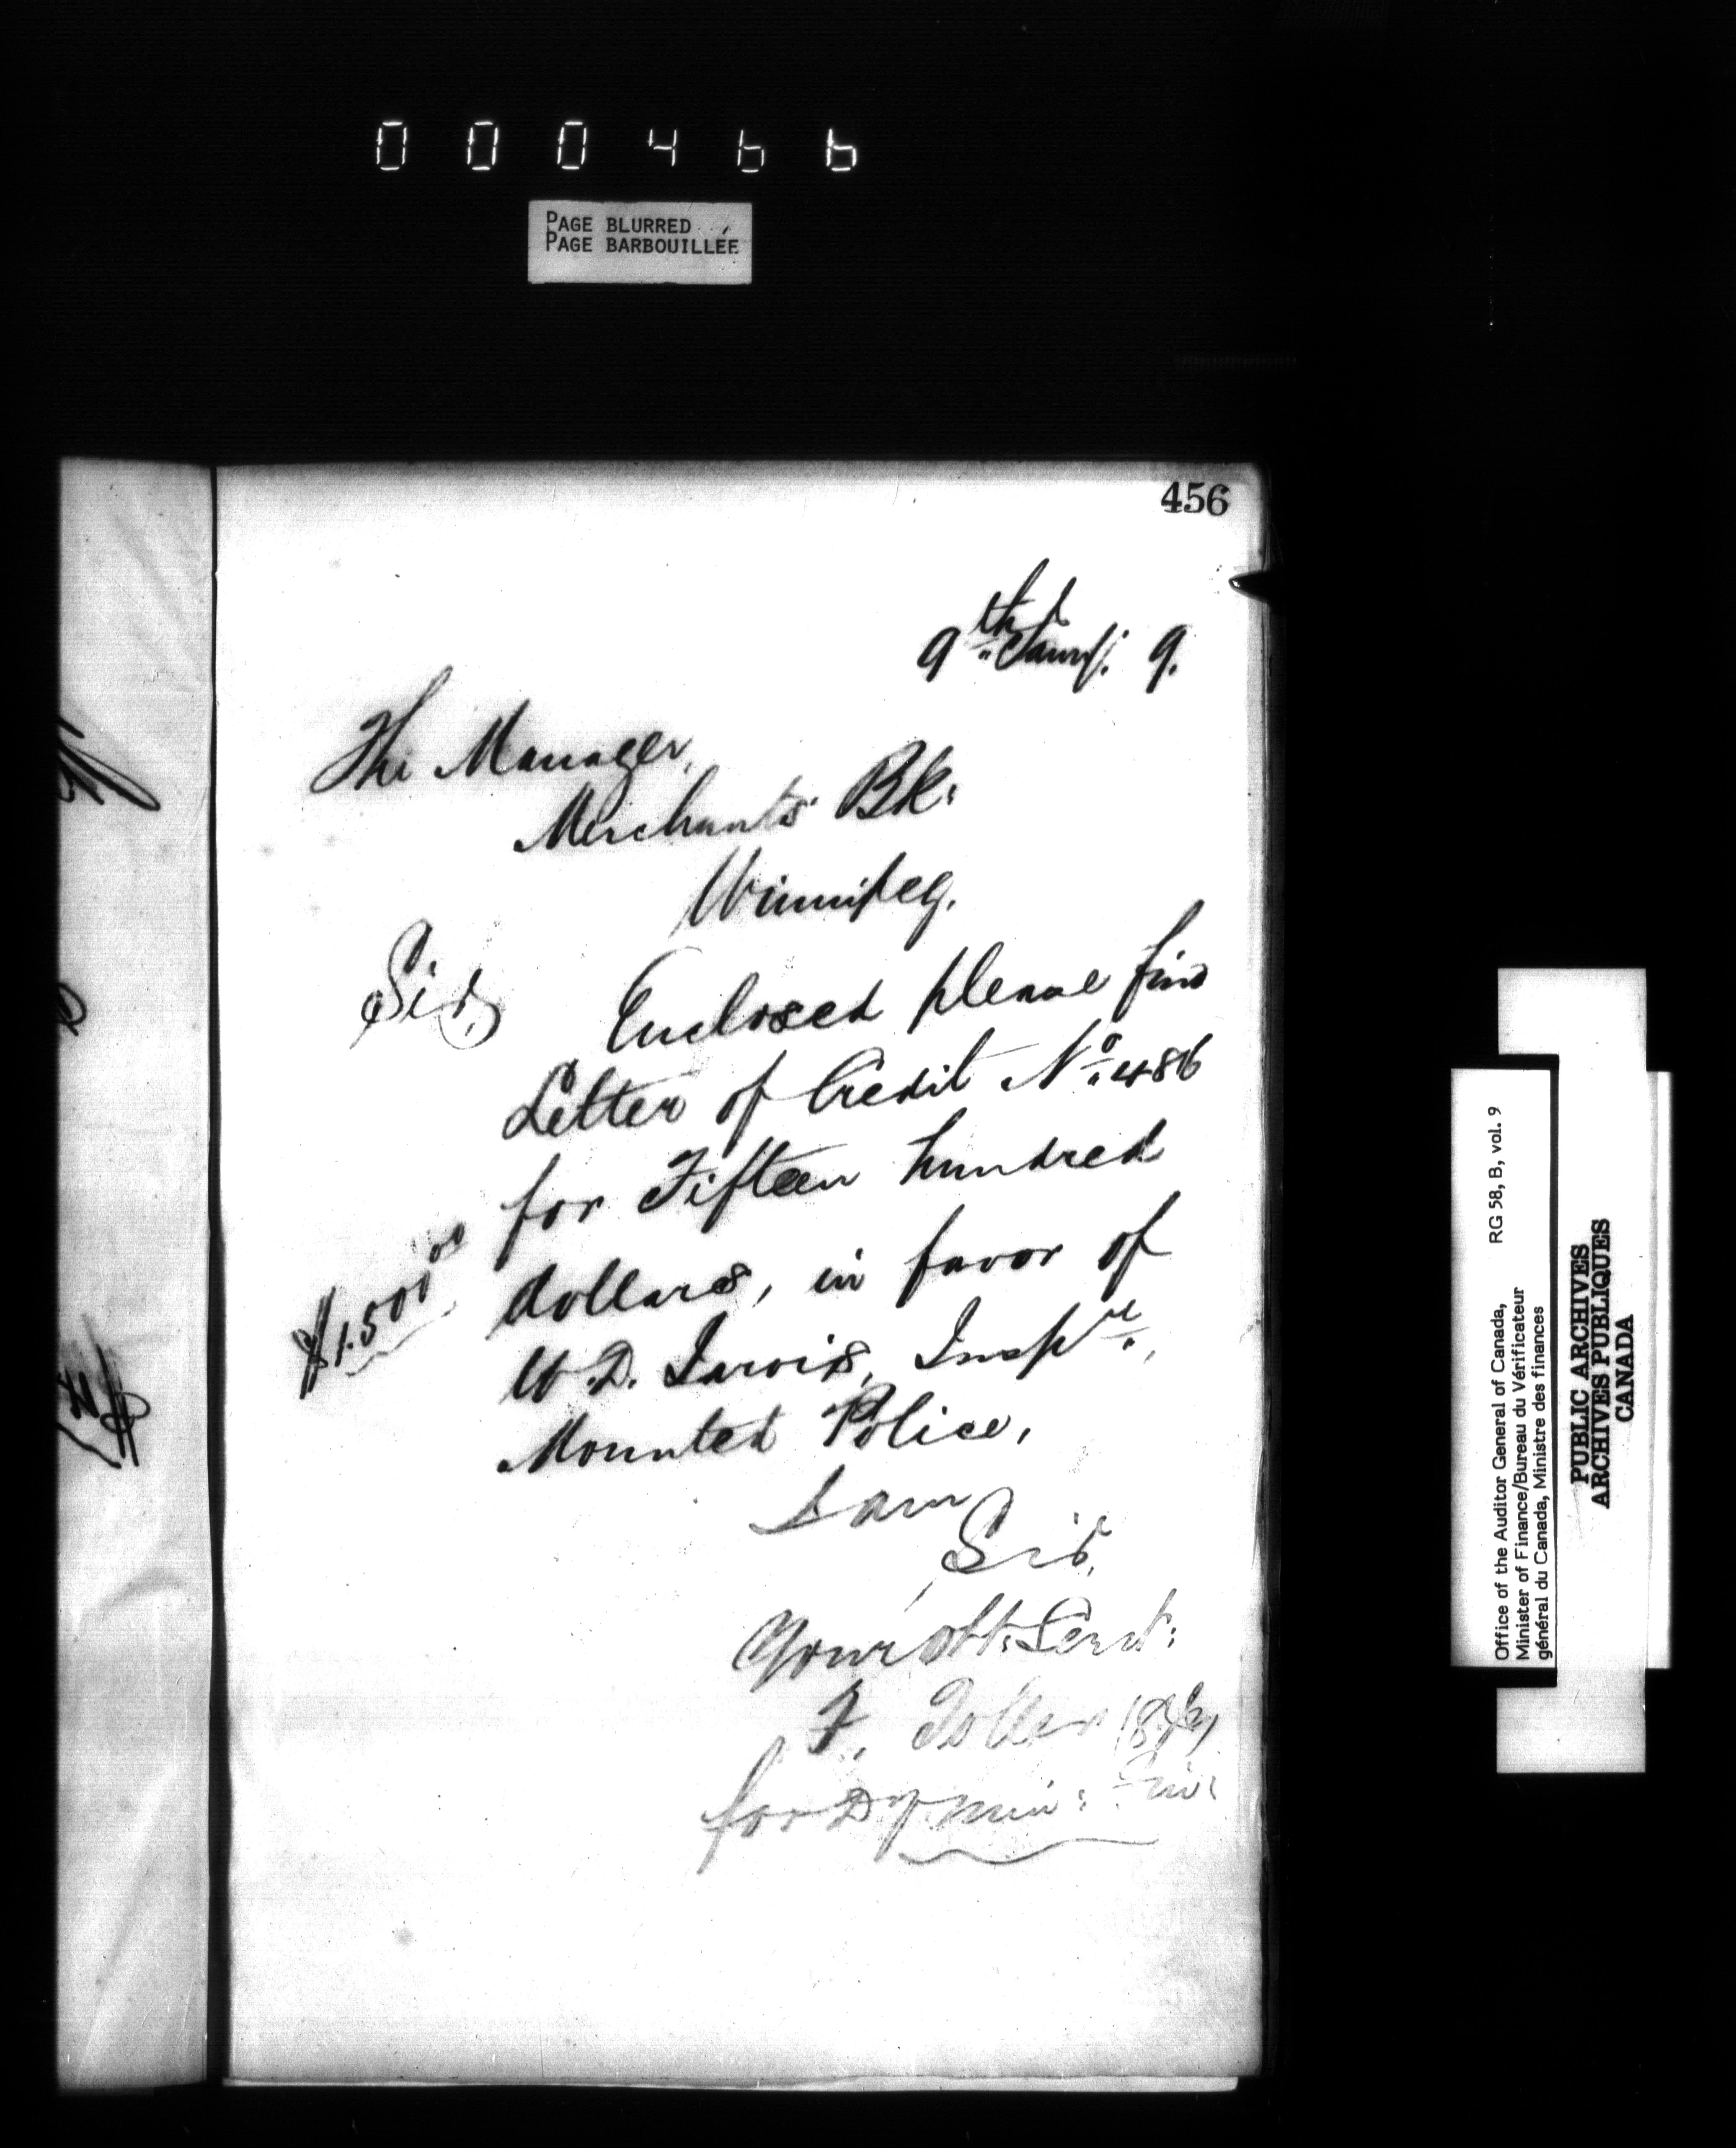 000466
PAGE BLURRED
PAGE BARBOUILLÉE
456
9th Jany. 9.
The Manager,
Merchants Bk:
Winnipeg.
Sir,
Enclosed please find
Letter of Credit No. 486
for Fifteen hundred
$1.500 00
dollars, in favor of
W. D. Jarvis, Inspr.,
Mounted Police,
I am
Sir,
Your Obt: Servt:
F. Toller
for Dy Min: Fin:
Office of the Auditor General of Canada, RG 58, B, vol. 9
Minister of Finance/Bureau du Vérificateur
général du Canada, Ministre des finances
PUBLIC ARCHIVES
ARCHIVES PUBLIQUES
CANADA